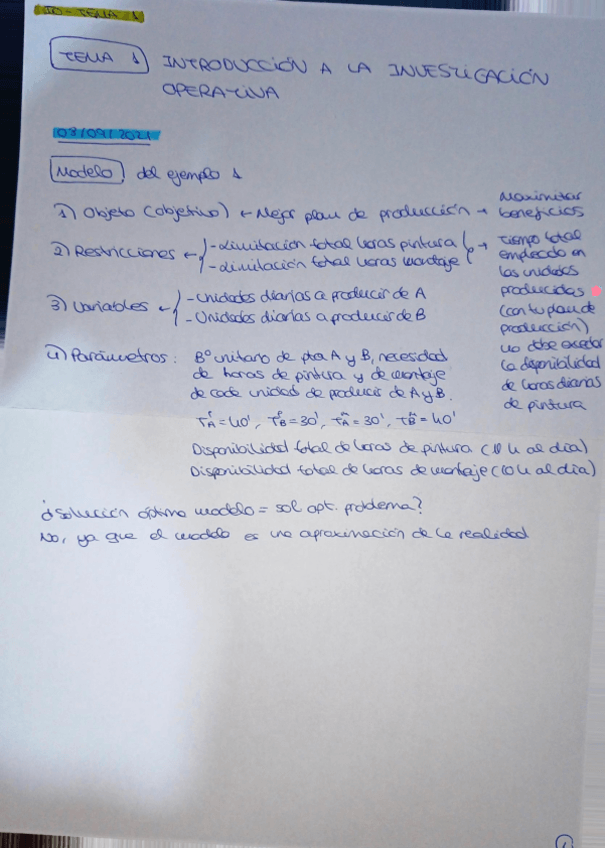 IO - TEMA 1
TEMA 1 INTRODUCCIÓN A LA INVESTIGACIÓN
OPERATIVA
03/09/2021
Modelo del ejemplo 1
1) Objeto (objetivo) ← Mejor plan de producción → Maximizar
beneficios
2) Restricciones ← { - Limitación total horas pintura
- Limitación total horas montaje } → Tiempo total
empleado en
las unidades
producidas
(con tu plan de
producción)
no debe exceder
la disponibilidad
de horas diarias
de pintura
3) Variables ← { - Unidades diarias a producir de A
- Unidades diarias a producir de B
4) Parámetros: Bº unitario de pta A y B, necesidad
de horas de pintura y de montaje
de cada unidad de producir de A y B.
= 40', = 30', = 30', = 40'
Disponibilidad total de horas de pintura (10 h al día)
Disponibilidad total de horas de montaje (10 h al día)
¿Solución óptima modelo = sol opt. problema?
No, ya que el modelo es una aproximación de la realidad
1